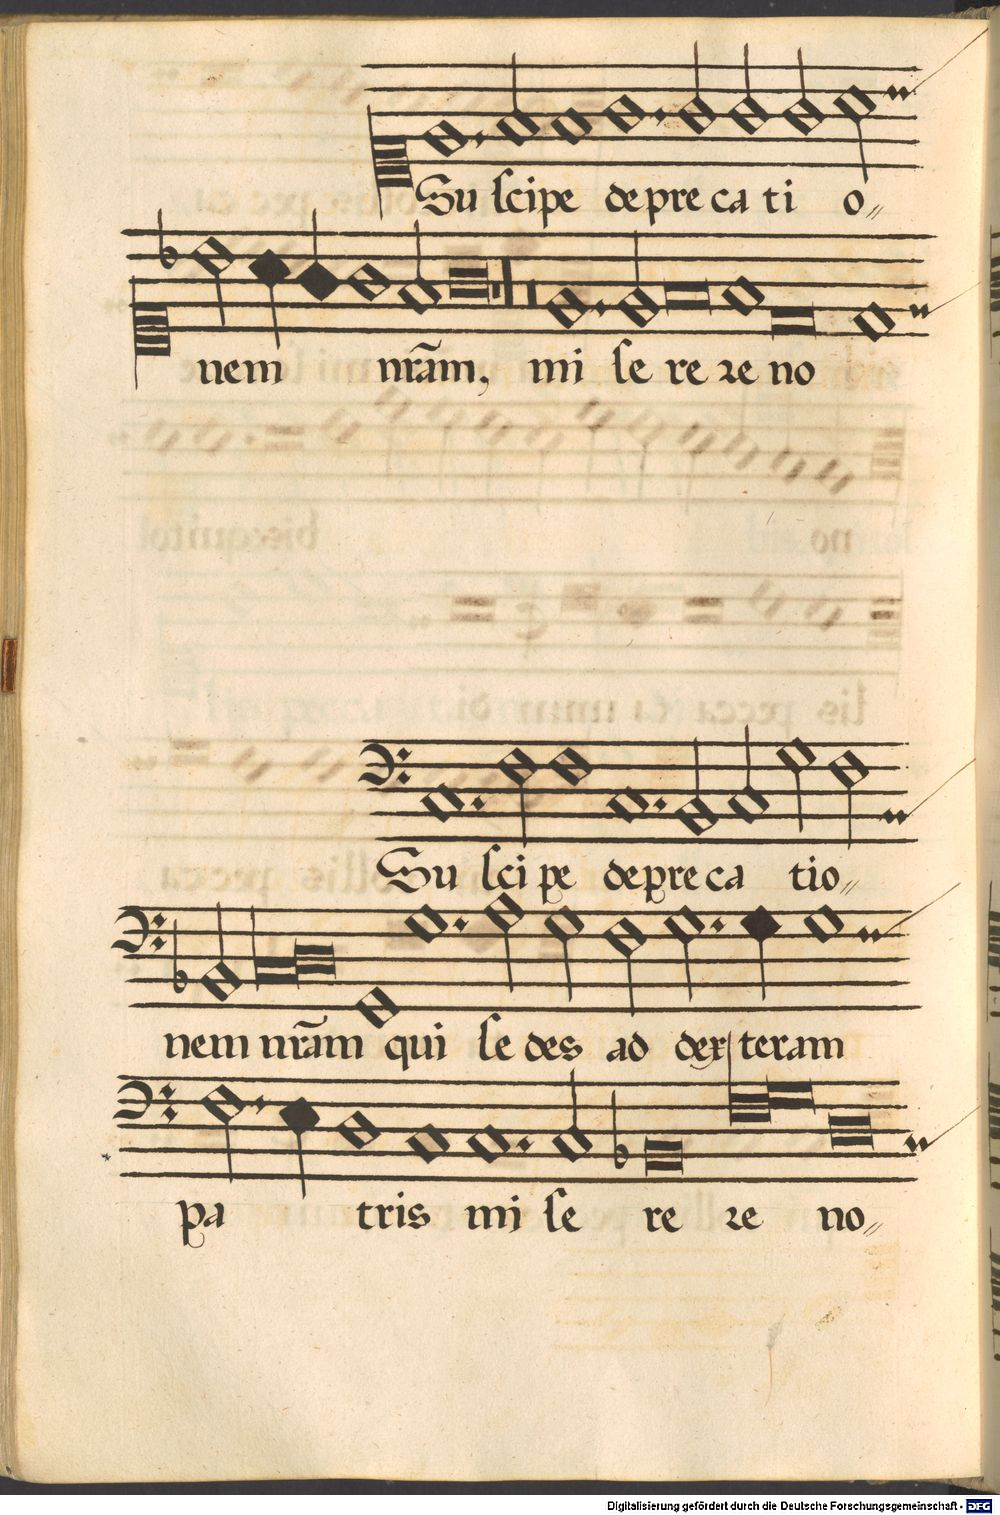 Su scipe depre ca ti o„
nem nr̃am, mi se re re no
Su sci pe depre ca tio„
nem nr̃am qui se des ad dex teram
pa tris mi se re re no„
Digitalisierung gefördert durch die Deutsche Forschungsgemeinschaft - DFG